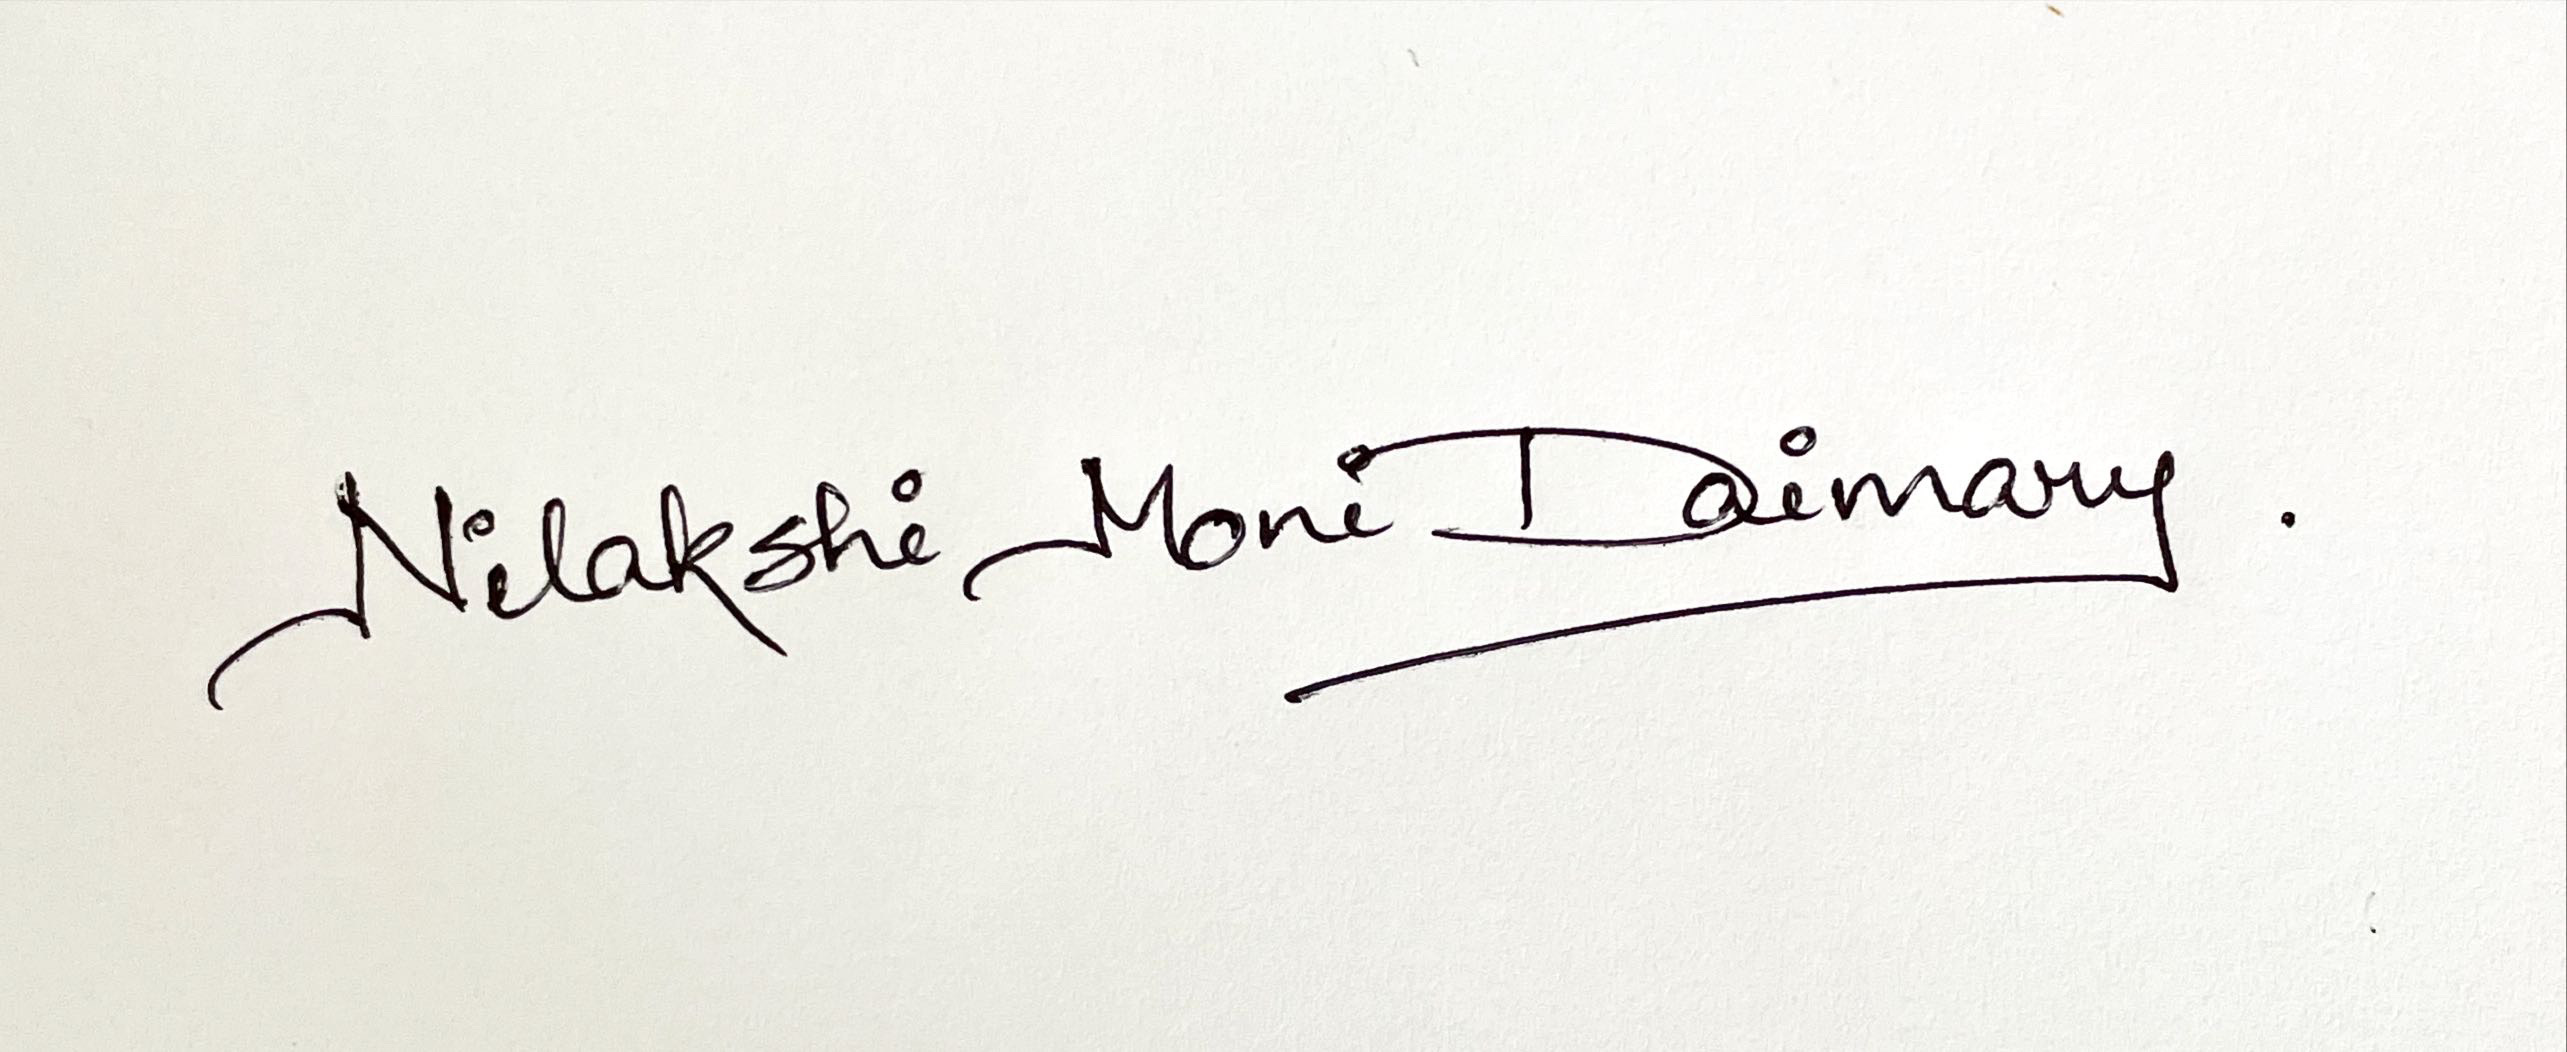 Nilakshi Moni Daimary.